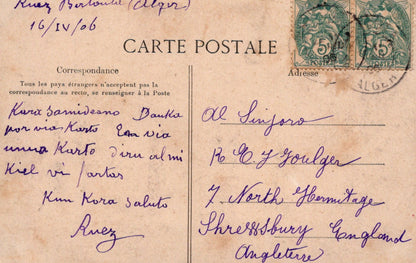 Ruez Bertould (Alger)
16/IV/06
CARTE POSTALE
Correspondance
Tous les pays étrangers n'acceptent pas la
correspondance au recto, se renseigner à la Poste
Adresse
Kara Samideano Danka
por via Karto En via
unua Karto diru al mi
Kiel vi fartas
Kun Kora Saluto
Ruez
Al Sinjoro
R E J Goulger
7 North Hermitage
Shrewsbury England
Angleterre
5c
5c
ALGER